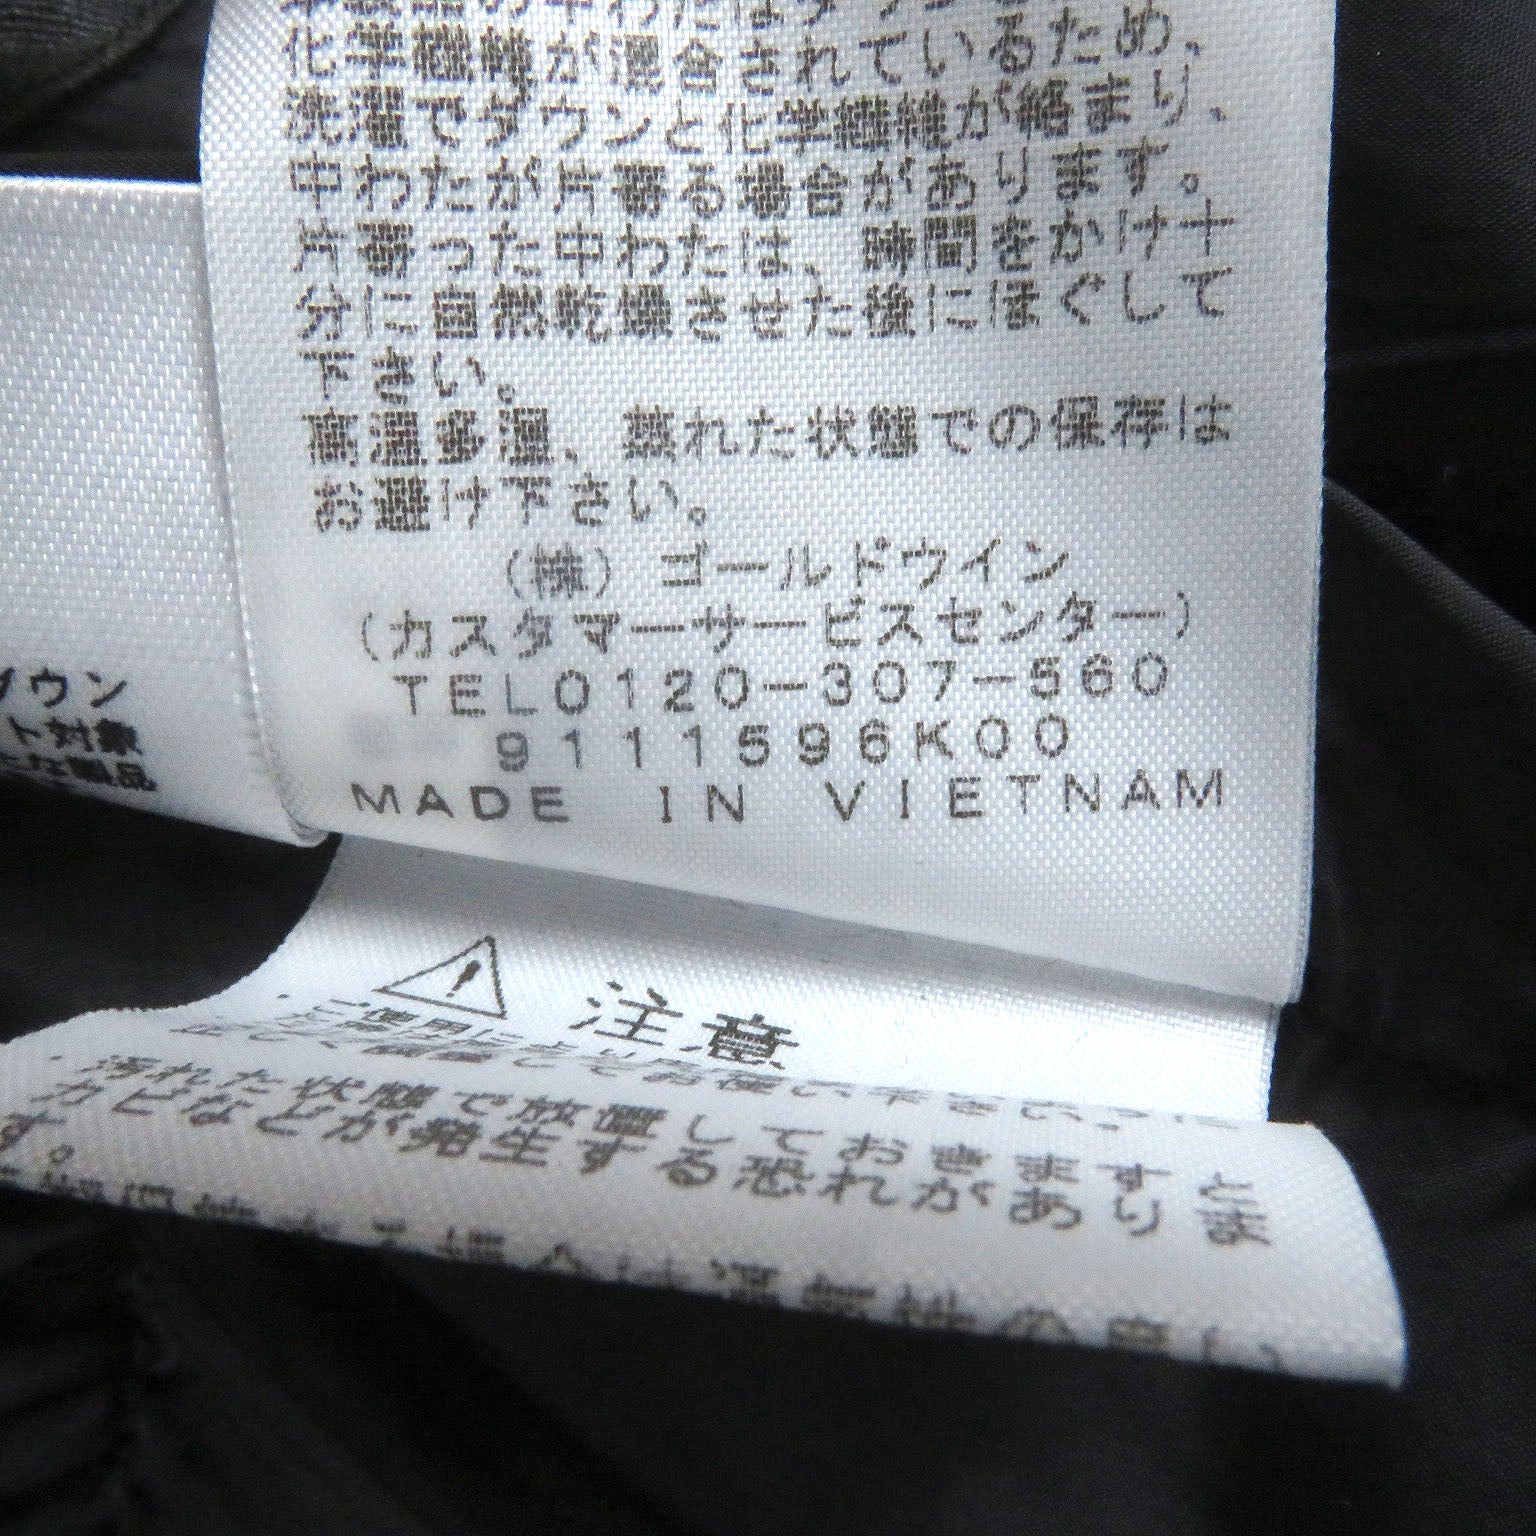 化学繊維が混合されているため、
洗濯でダウンと化学繊維が絡まり、
中わたが片寄る場合があります。
片寄った中わたは、時間をかけ十
分に自然乾燥させた後にほぐして
下さい。
高温多湿、蒸れた状態での保存は
お避け下さい。
(株) ゴールドウイン
(カスタマーサービスセンター)
TEL0120-307-560
9111596K00
MADE IN VIETNAM
ウン
ト対象
製品
注意
・ご使用に
・汚れた状態で放置しておきますと
カビなどが発生する恐れがありま
す。
場合は